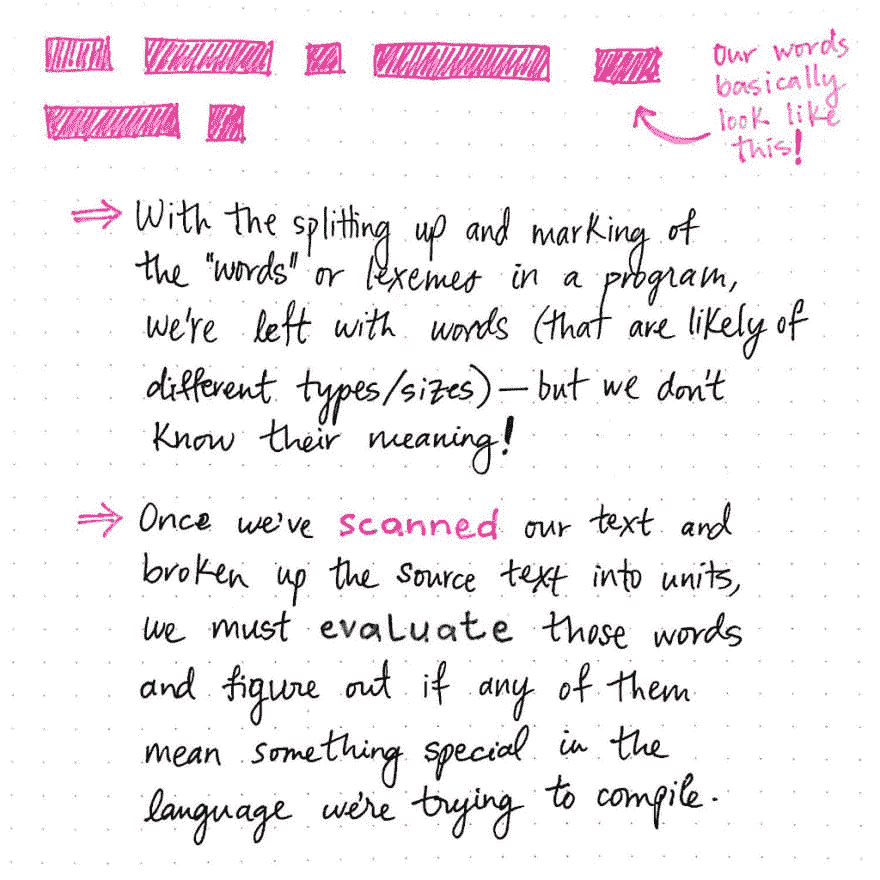 Our words
basically
look like
this!
⇒ With the splitting up and marking of
the "words" or lexemes in a program,
we're left with words (that are likely of
different types/sizes) — but we don't
know their meaning!
⇒ Once we've scanned our text and
broken up the source text into units,
we must evaluate those words
and figure out if any of them
mean something special in the
language we're trying to compile.